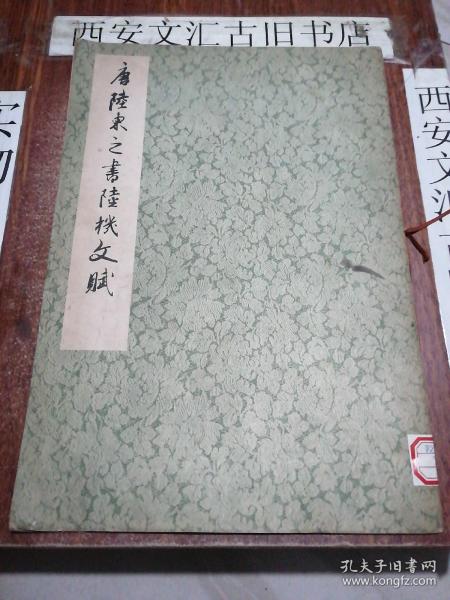 西安文汇古旧书店
唐陸柬之書陸機文賦
西安文汇
实物
孔夫子旧书网
www.kongfz.com